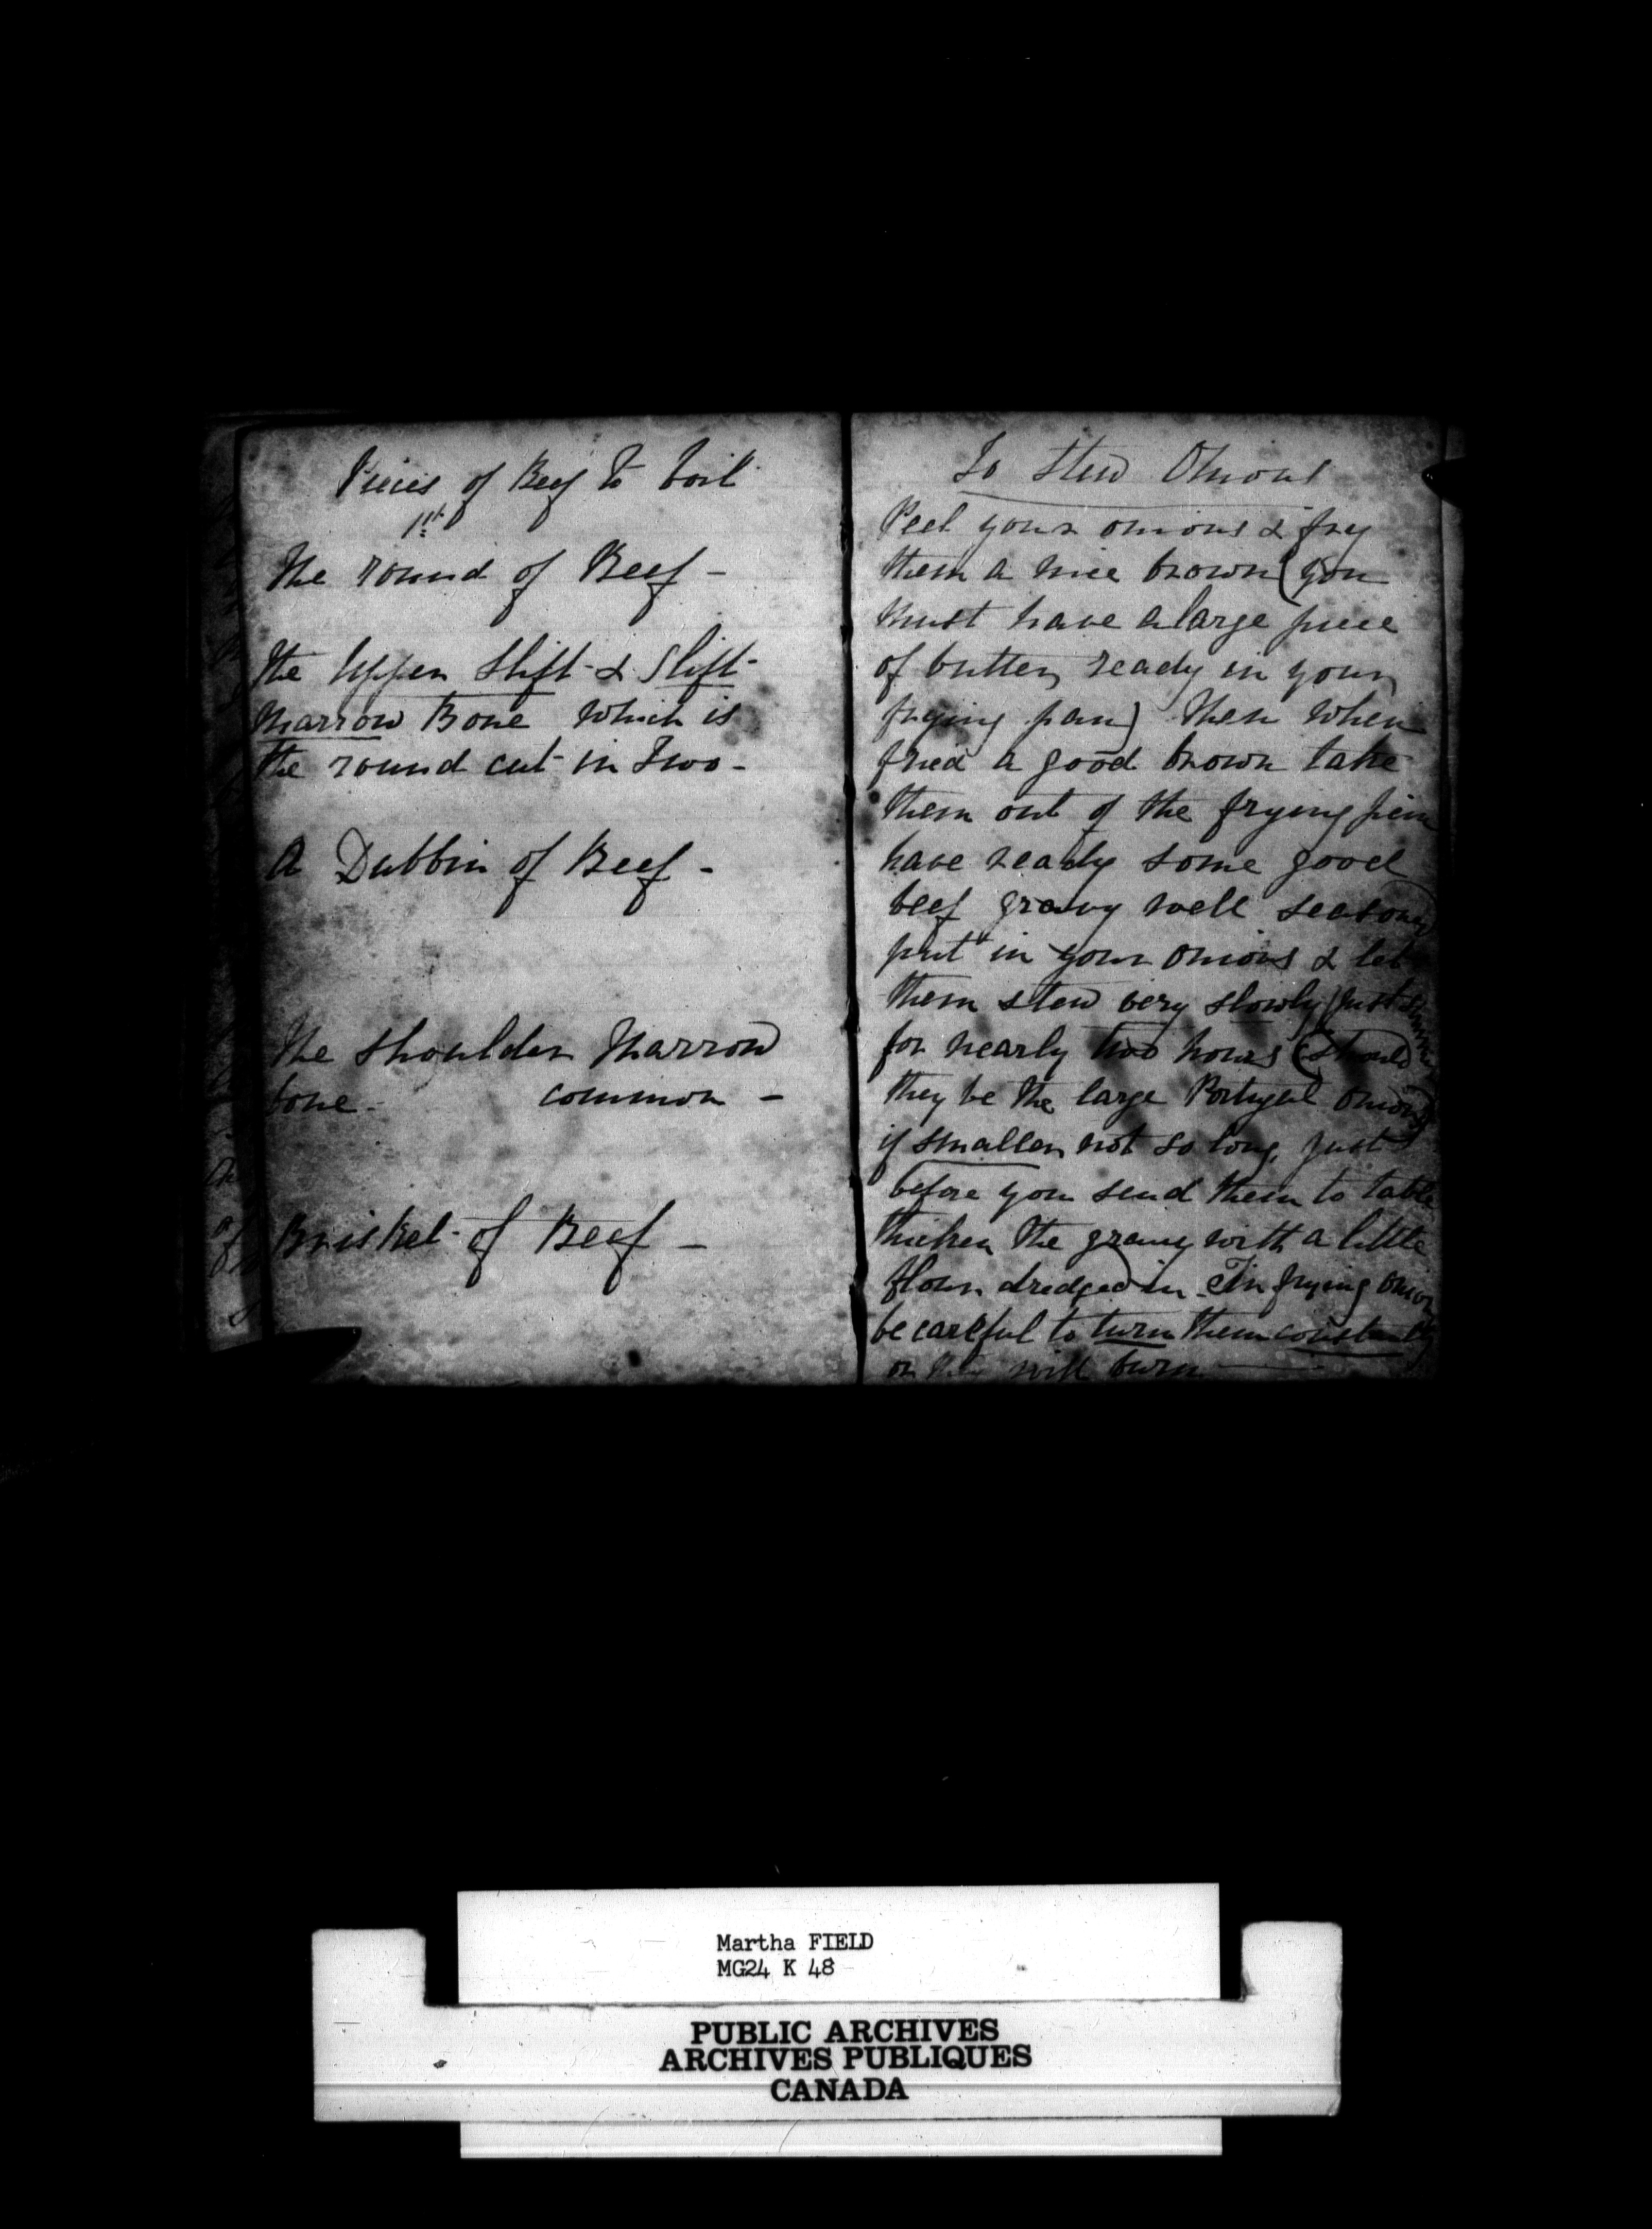 Pieces of Beef to boil
1st
The round of Beef -
The Upper Slift & Slift
Marrow Bone which is
the round cut in Two -
A Dubbin of Beef -
The Shoulder Marrow
bone - common -
Brisket of Beef -
To Stew Onions
Peel your onions & fry
them a nice brown (you
must have a large piece
of butter ready in your
frying pan) then when
fried a good brown take
them out of the frying pan
have ready some good
beef gravy well seasoned
put in your onions & let
them stew very slowly (just simmer
for nearly two hours (should
they be the large Portugal onions)
if smaller not so long, just
before you send them to table
thicken the gravy with a little
flour dredged in - In frying onions
be careful to turn them constantly
or they will burn
Martha FIELD
MG24 K 48
PUBLIC ARCHIVES
ARCHIVES PUBLIQUES
CANADA